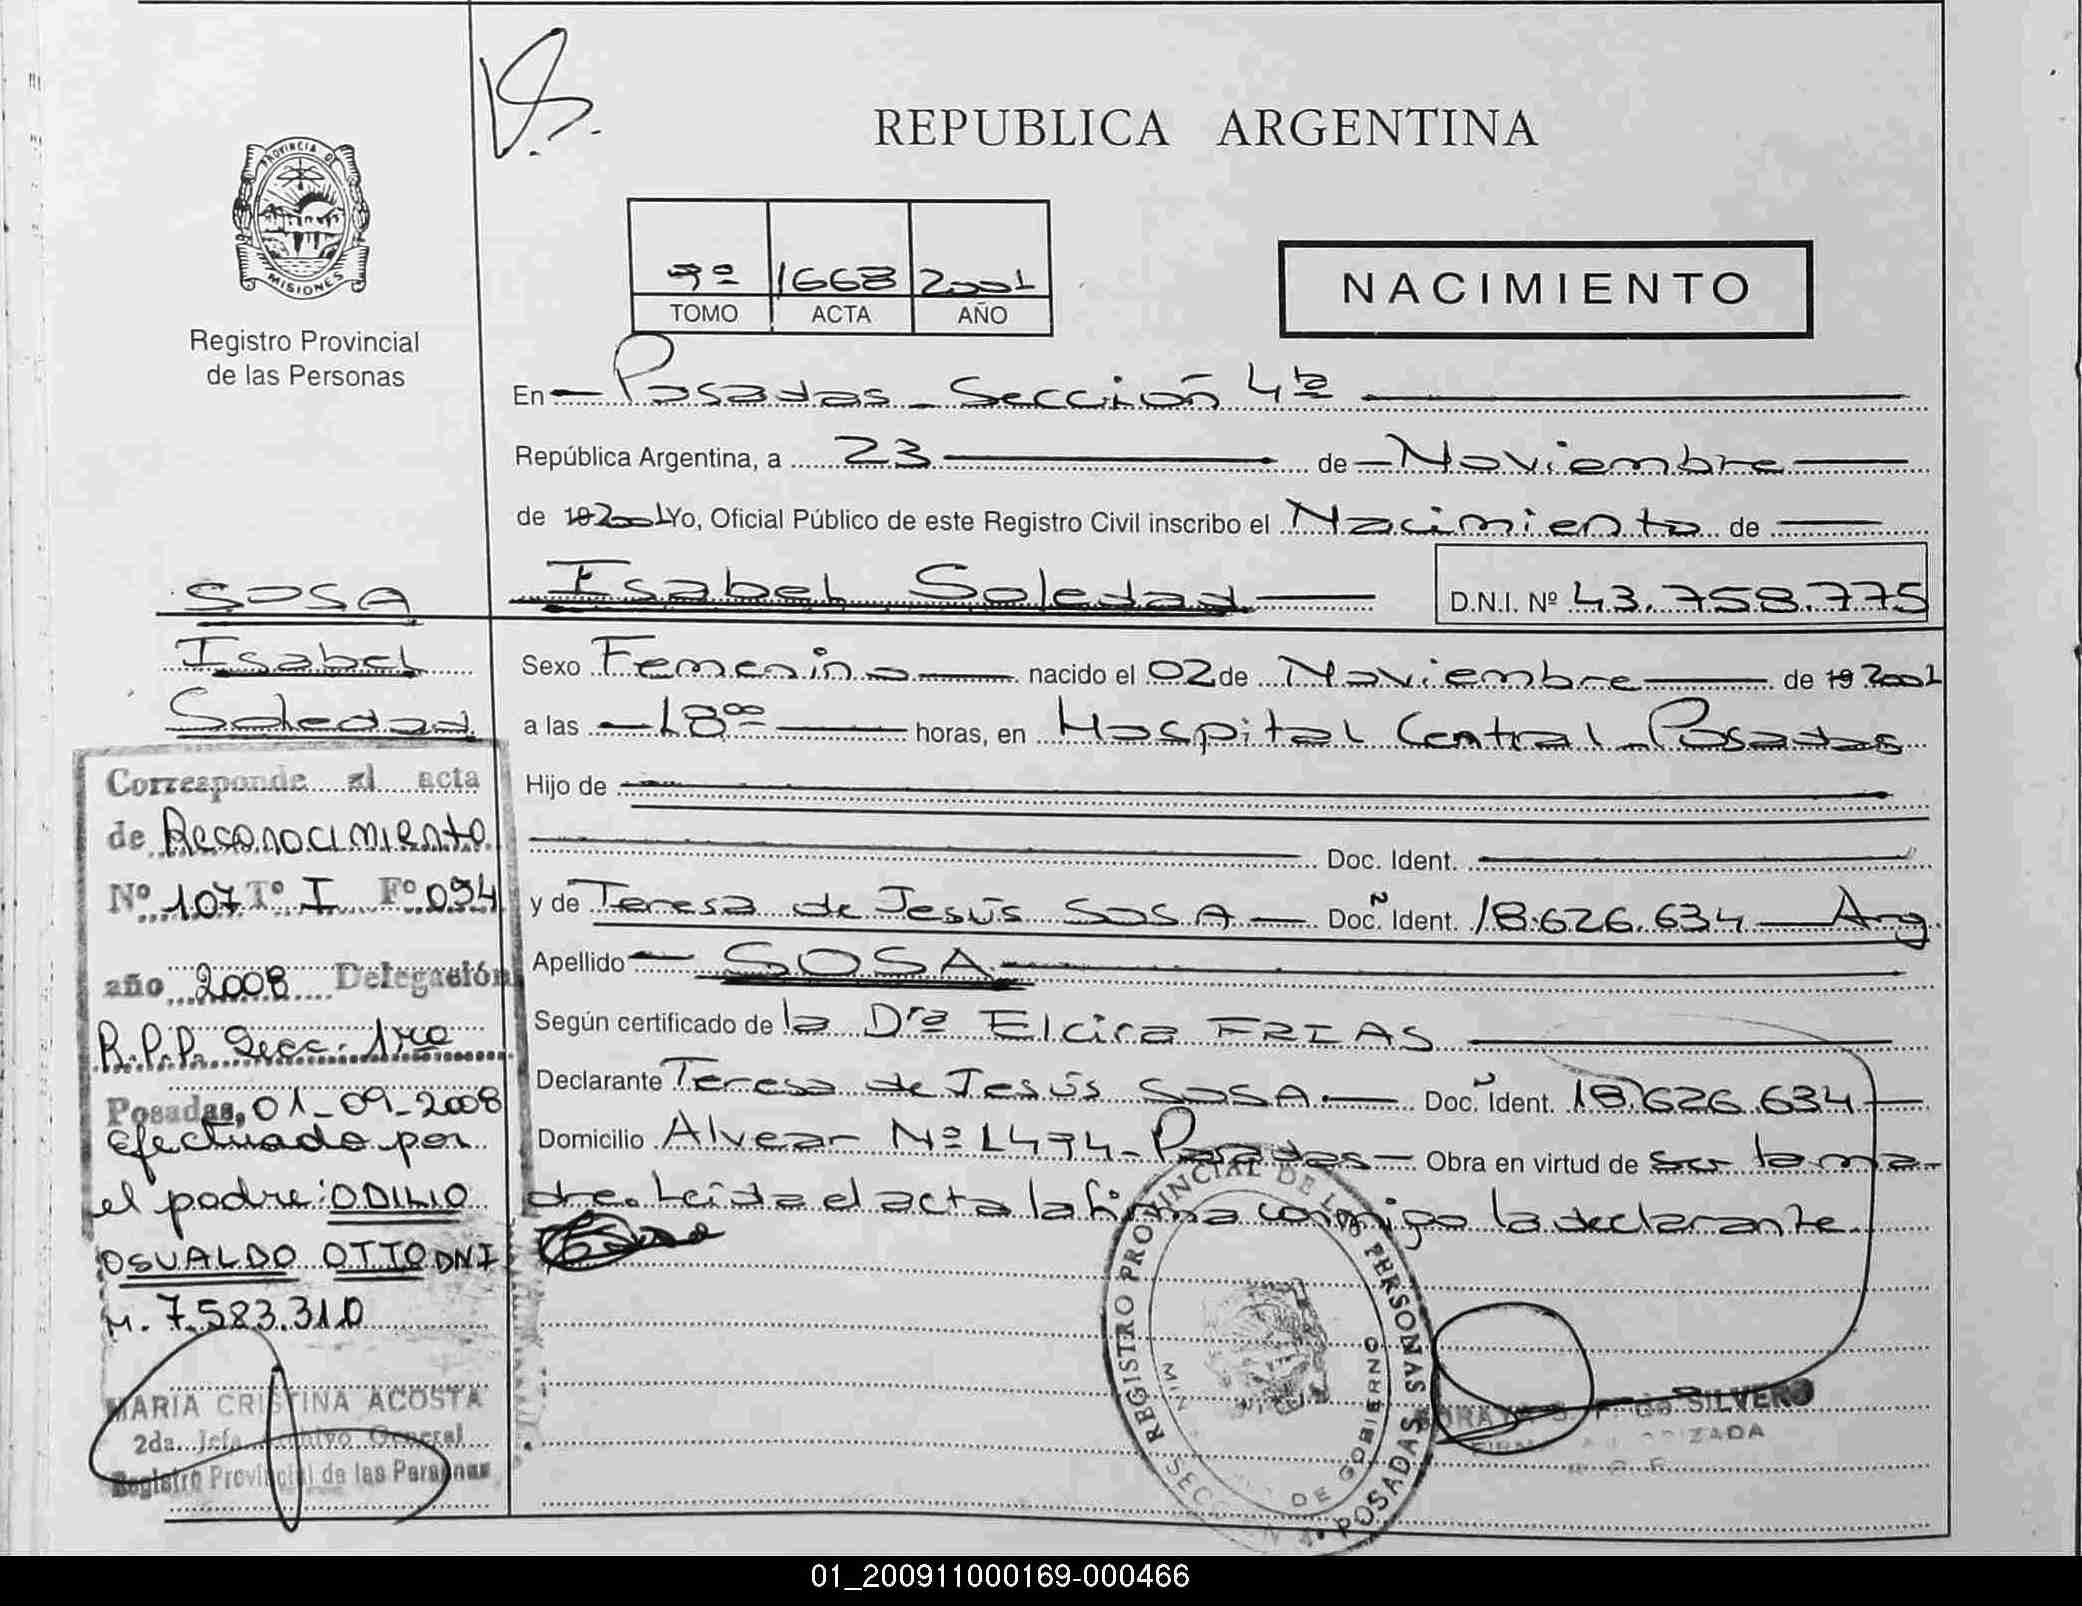 REPUBLICA ARGENTINA
PROVINCIA DE MISIONES
Registro Provincial
de las Personas
9º 1668 2001
TOMO ACTA AÑO
NACIMIENTO
En Posadas - Sección 4ta
República Argentina, a 23 de Noviembre
de 19 2001 Yo, Oficial Público de este Registro Civil inscribo el Nacimiento de
Isabel Soledad
D.N.I. Nº 43.758.775
Sexo Femenino nacido el 02 de Noviembre de 19 2001
a las 18ºº horas, en Hospital Central - Posadas
Hijo de
Doc. Ident.
y de Teresa de Jesús SOSA Doc. Ident. 18.626.634 - Arg.
Apellido SOSA
Según certificado de la Drª Elcira FRIAS
Declarante Teresa de Jesús SOSA Doc. Ident. 18.626.634
Domicilio Alvear Nº 1494 - Posadas Obra en virtud de ser la ma-
dre. Leída el acta la firma conmigo la declarante.
SOSA
Isabel
Soledad
Corresponde al acta
de Reconocimiento
Nº 107 Tº I Fº 094
año 2008 Delegación
R.P.P. Secc. 1ra
Posadas, 01-09-2008
efectuado por
el padre: ODILIO
OSVALDO OTTO DNI
M. 7.583.310
MARIA CRISTINA ACOSTA
2da. Jefa Archivo General
Registro Provincial de las Personas
REGISTRO PROVINCIAL DE LAS PERSONAS
DE GOBIERNO
POSADAS
de SILVERO
01_200911000169-000466